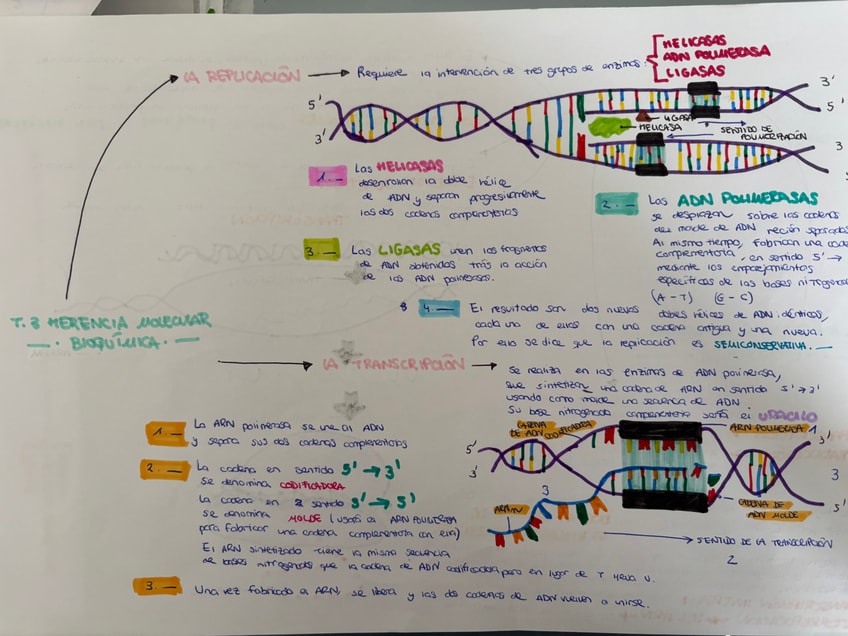 LA REPLICACIÓN → Requiere la intervención de tres grupos de enzimas:
HELICASAS
ADN POLIMERASA
LIGASAS
3'
5'
5'
3'
LIGASA
HELICASA
SENTIDO DE POLIMERIZACIÓN
3'
5'
1.- Las HELICASAS
desenrollan la doble hélice
de ADN y separan progresivamente
las dos cadenas complementarias
2.- Las ADN POLIMERASAS
se desplazan sobre las cadenas
de molde de ADN recién separadas
Al mismo tiempo, fabrican una cadena
complementaria, en sentido 5' →
mediante los emparejamientos
específicos de las bases nitrogenadas
(A - T) (G - C)
3.- Las LIGASAS unen los fragmentos
de ADN obtenidos trás la acción
de las ADN polimerasas.
4.- El resultado son dos nuevas
dobles hélices de ADN idénticas,
cada una de ellas con una cadena antigua y una nueva.
Por ello se dice que la replicación es SEMICONSERVATIVA.
T.3 HERENCIA MOLECULAR
- BIOQUÍMICA. -
LA TRANSCRIPCIÓN →
Se realiza en las enzimas de ADN polimerasa,
que sintetizan una cadena de ARN en sentido 5' → 3'
usando como molde una secuencia de ADN
Su base nitrogenada complementaria sería el URACILO
1.- La ARN polimerasa se une al ADN
y separa sus dos cadenas complementarias
2.- La cadena en sentido 5' → 3'
se denomina CODIFICADORA
La cadena en sentido 3' → 5'
se denomina MOLDE (usará al ARN POLIMERASA
para fabricar una cadena complementaria con ella)
El ARN sintetizado tiene la misma secuencia
de bases nitrogenadas que la cadena de ADN codificadora, pero en lugar de T lleva U.
3.- Una vez fabricado el ARN, se libera y las dos cadenas de ADN vuelven a unirse.
CADENA DE ADN CODIFICADORA
ARN POLIMERASA 1
5'
3'
3'
3
3
5'
ARNm
CADENA DE ADN MOLDE
SENTIDO DE LA TRANSCRIPCIÓN
2